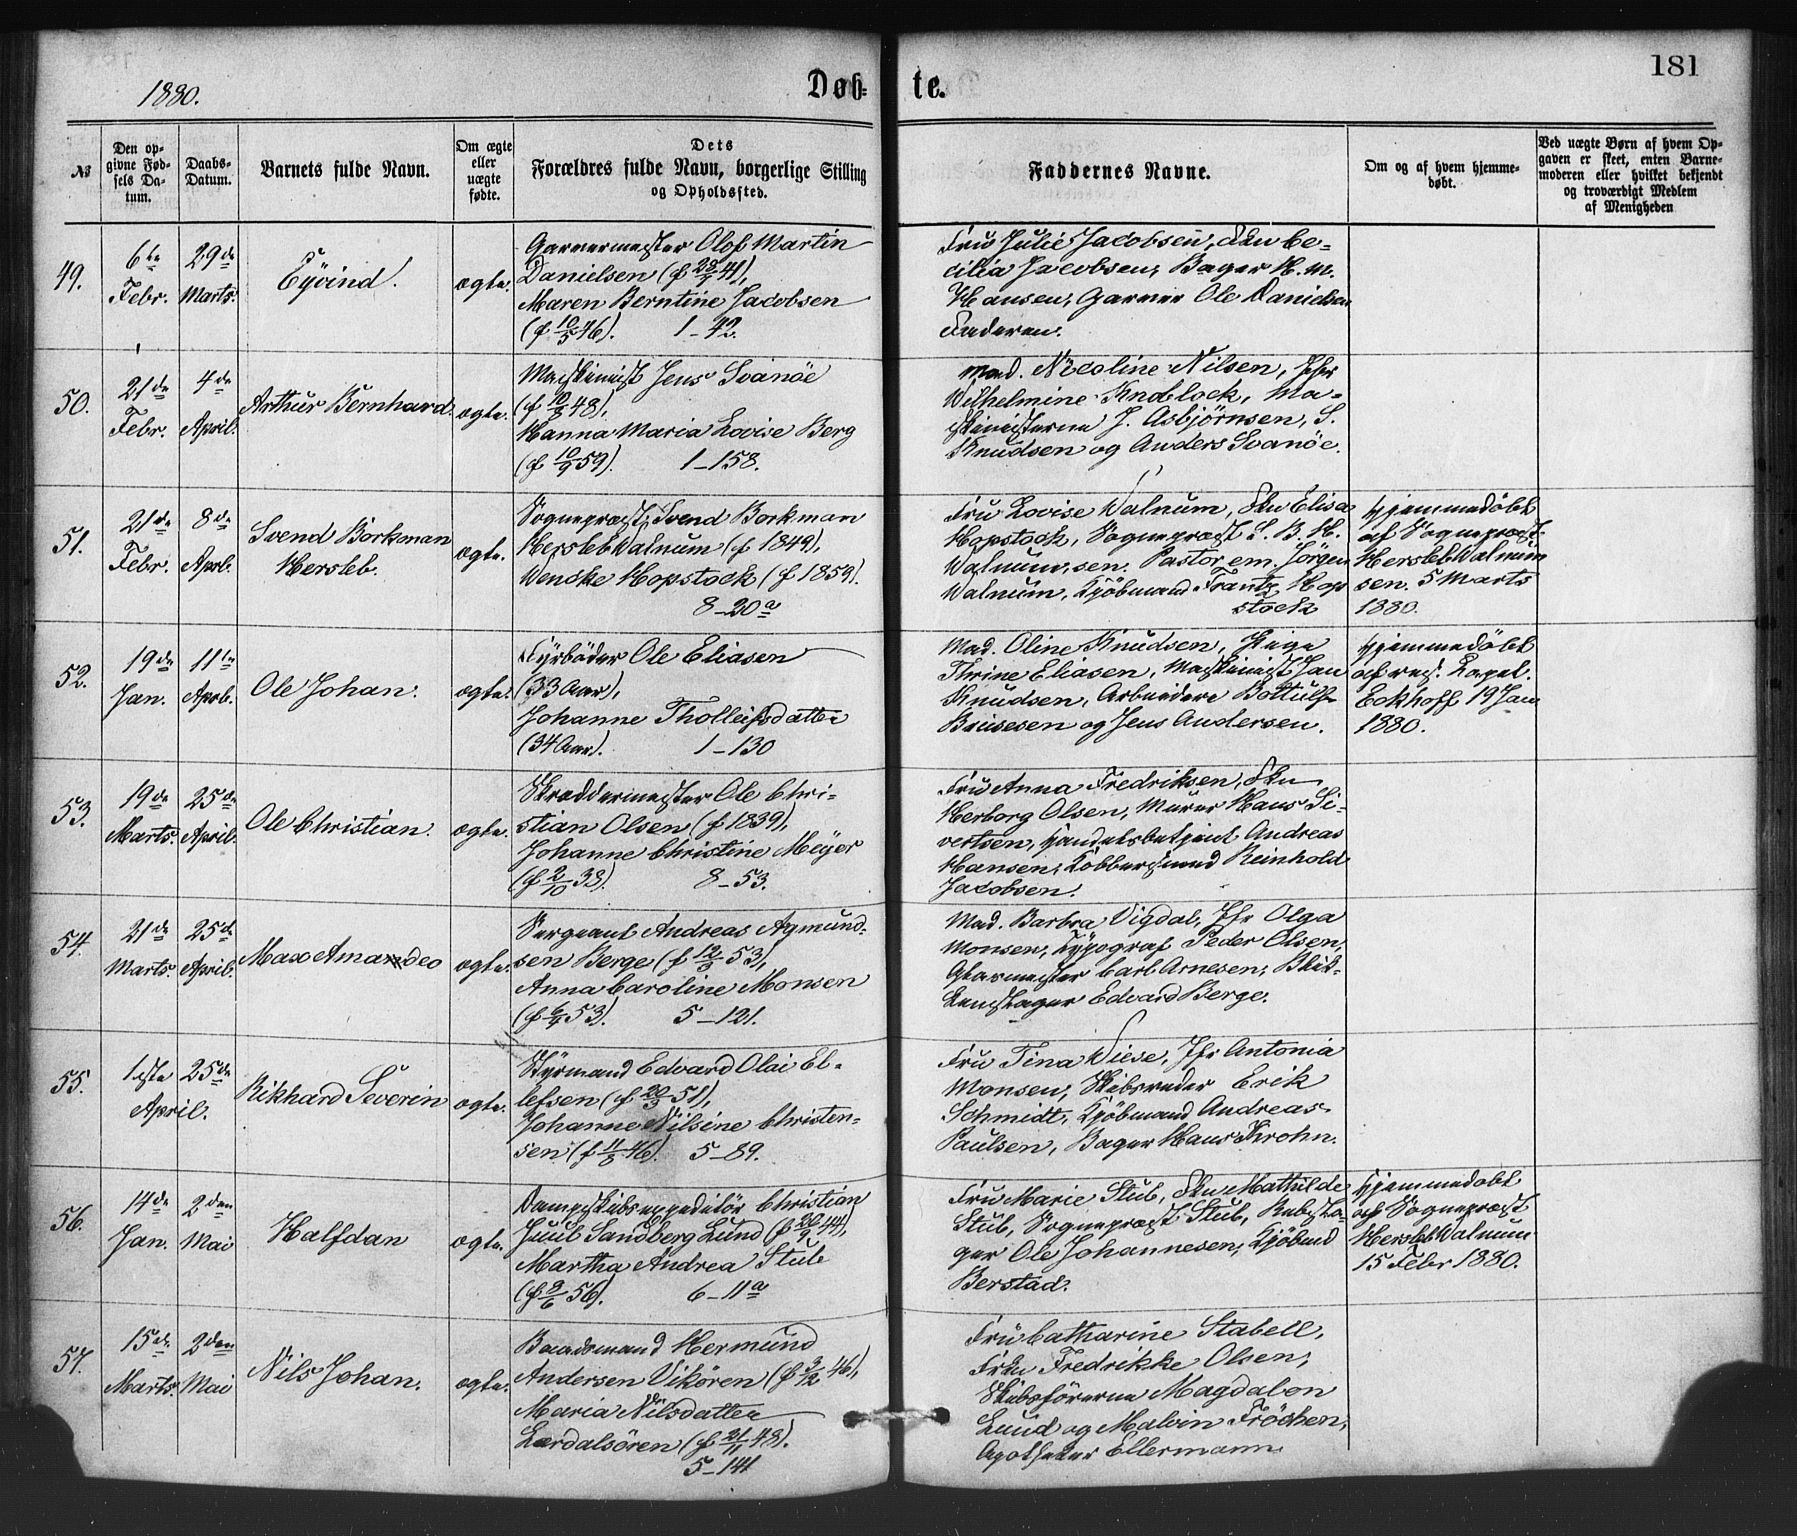 181
1880.
Døb-
te.
№
Den op-
givne Fød-
sels Da-
tum.
Daabs-
Datum.
Barnets fulde Navn.
Om ægte
eller
uægte
fødte.
Dets
Forældres fulde Navn, borgerlige Stilling
og Opholdssted.
Faddernes Navne.
Om og af hvem hjemme-
døbt.
Ved uægte Børn af hvem Op-
gaven er skeet, enten Barne-
moderen eller hvilket bekjendt
og troværdigt Medlem
af Menigheden
49.
6te
Febr.
29de
Marts.
Eyvind.
ægte.
Garvermester Olof Martin
Danielsen (f 41),
Maren Berntine Jacobsen
(f 10/5 46). 1–42.
Fru Julie Jacobsen, Frkn Ce-
cilia Jacobsen, Bager H. M.
Hansen, Garver Ole Danielsen
Faderen.
50.
21de
Febr.
4de
April.
Arthur Bernhard.
ægte.
Maskinist Jens Svanöe
(f 48),
Hanna Maria Lovise Berg
(f 10/9 59). 1–158.
Mad. Nicoline Nilsen, Jfr
Wilhelmine Knoblock, Ma-
skinisterne J. Asbjörnsen, S.
Knudsen og Anders Svanöe.
51.
21de
Febr.
8de
April.
Svend Borkman
Hersleb.
ægte.
Sognepræst Svend Borkman
Hersleb Walnum (f 1849),
Wenske Hopstock (f 1859).
8–20a
Fru Lovise Walnum, Frkn Elisa
Hopstock, Sognepræst S. B. H.
Walnum, sen. Pastor em. Jörgen
Walnum, Kjöbmand Frantz Hop
stock
Hjemmedöbt
af Sognepræst
Hersleb Walnum
sen. 5 Marts
1880.
52.
19de
Jan.
11te
April.
Ole Johan.
ægte.
Fyrböder Ole Eliasen
(33 Aar),
Johanne Tholleifsdatter
(34 Aar). 1–130
Mad. Oline Knudsen, Pige
Thrine Eliasen, Maskinist Jan
Knudsen, Arbeidere Bottulf
Brusesen og Jens Andersen.
Hjemmedöbt
af res. Capel.
Eckhoff 19 Jan
1880.
53.
19de
Marts.
25de
April.
Ole Christian.
ægte.
Skræddermester Ole Chri-
stian Olsen (f 1839),
Johanne Christine Meyer
(f 2/10 38) 8–53.
Fru Anna Fredriksen, Frkn
Herborg Olsen, Murer Hans Si-
vertsen, Handelsbetjent Andreas
Hansen, Kobbersmed Reinhold
Jacobsen.
54.
21de
Marts.
25de
April.
Max Amandeo
ægte.
Sergeant Andreas Agmund-
sen Berge (f 12/3 53),
Anna Caroline Monsen
(f 53). 5–121.
Mad. Barbra Vigdal, Jfr Olga
Monsen, Typograf Peder Olsen,
Glasmester Carl Arnesen, Blik-
kenslager Edvard Berge.
55.
1ste
April.
25de
Rikhard Severin
ægte.
Styrmand Edvard Olai El-
lefsen (f 20/3 51),
Johanne Nilsine Christen-
sen (f 46) 5–89.
Fru Tina Wiese, Jfr Antonia
Monsen, Skibsreder Erik
Schmidt, Kjöbmand Andreas
Paulsen, Bager Hans Krohn.
56.
14de
Jan.
2den
Mai
Halfdan
ægte.
Dampskibsexpeditör Christian
Juul Sandberg Lund (f 44),
Martha Andrea Stub
(f 56). 6–11a
Fru Marie Stub, Frkn Mathilde
Stub, Sognepræst Stub, Rebsla-
ger Ole Johannesen, Kjöbmd
Berstad.
Hjemmedöbt
af Sognepræst
Hersleb Walnum
15 Febr 1880.
57.
15de
Marts.
2den
Mai
Nils Johan.
ægte.
Baadsmand Hermund
Andersen Vikören (f 46),
Maria Nilsdatter
Lærdalsören (f 21/11 48).
5–141
Fru Catharine Stabell,
Frkn Fredrikke Olsen,
Skibsförerne Magdalon
Lund og Malvin Fröchen,
Apotheker Ellermann